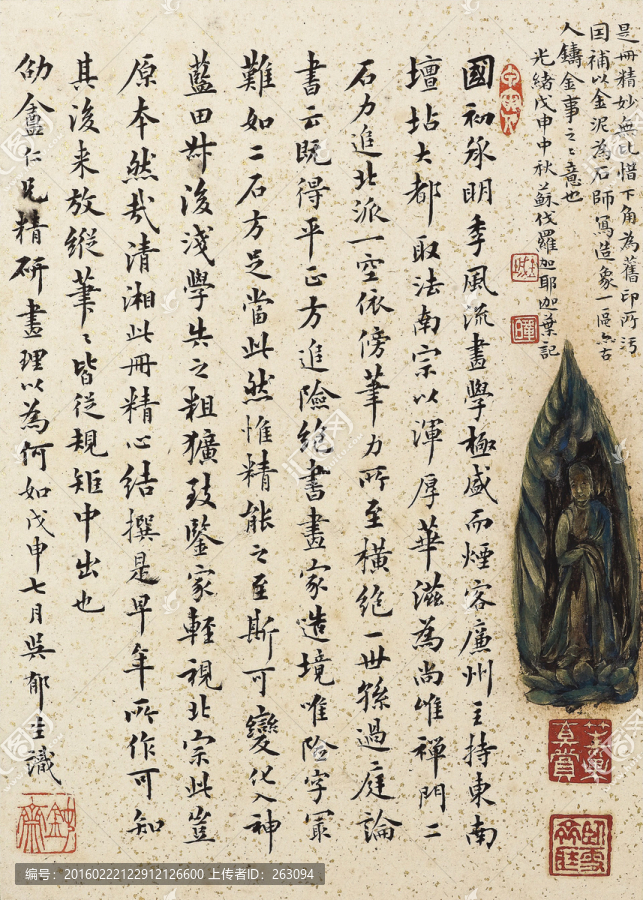 是冊精妙無比惜下角為舊印所污
因補以金泥為石師寫造象一區亦古
人鑄金事之之意也
光緒戊申中秋蘇伐羅迦耶迦葉記
國初承明季風流畫學極盛而煙客廉州主持東南
壇坫大都取法南宗以渾厚華滋為尚惟禪門二
石力追北派一空依傍筆力所至橫絕一世孫過庭論
書云既得平正方追險絕書畫家造境唯險字最
難如二石方足當此然惟精能之至斯可變化入神
藍田叔後淺學步之粗獷致鑒家輕視北宗此豈
原本然哉清湘此冊精心結撰是早年所作可知
其後來放縱筆筆皆從規矩中出也
劬盦仁兄精研畫理以為何如戊申七月吳郁生識
编号：20160222122912126600 上传者ID：263094